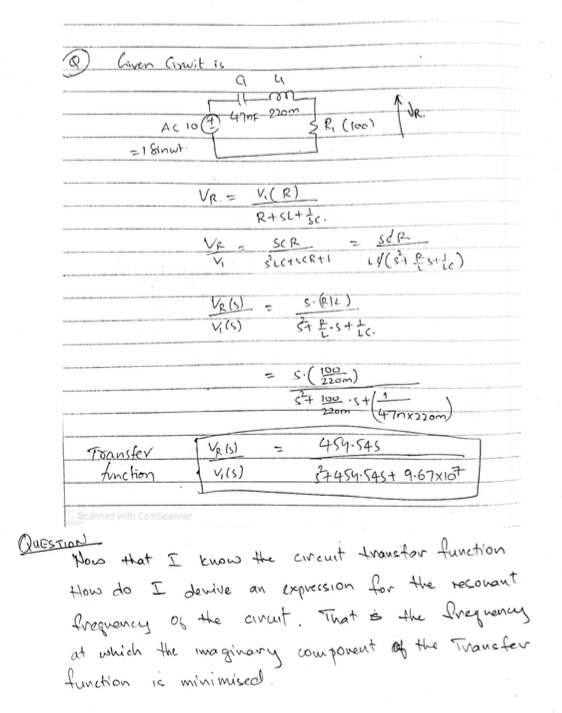 Q Given Circuit is
C1 L1
47nF 220m
AC 10
= 1 Sinwt
R1 (100)
VR.
VR. = Vi(R) / R+SL+1/SC.
VR / Vi = SCR / S²LC+SCR+1 = SCR / LC(S²+R/L S+1/LC)
VR(S) / Vi(S) = S.(R/L) / S²+R/L.S+1/LC.
= S.(100/220m) / S²+100/220m.S+(1/47nx220m)
Transfer function VR(S) / Vi(S) = 454.54S / S²+454.54S+9.67x10⁷
Scanned with CamScanner
QUESTION
Now that I know the circuit transfor function
How do I derive an expression for the resonant
frequency of the circuit. That is the frequency
at which the imaginary component of the Transfer
function is minimised.